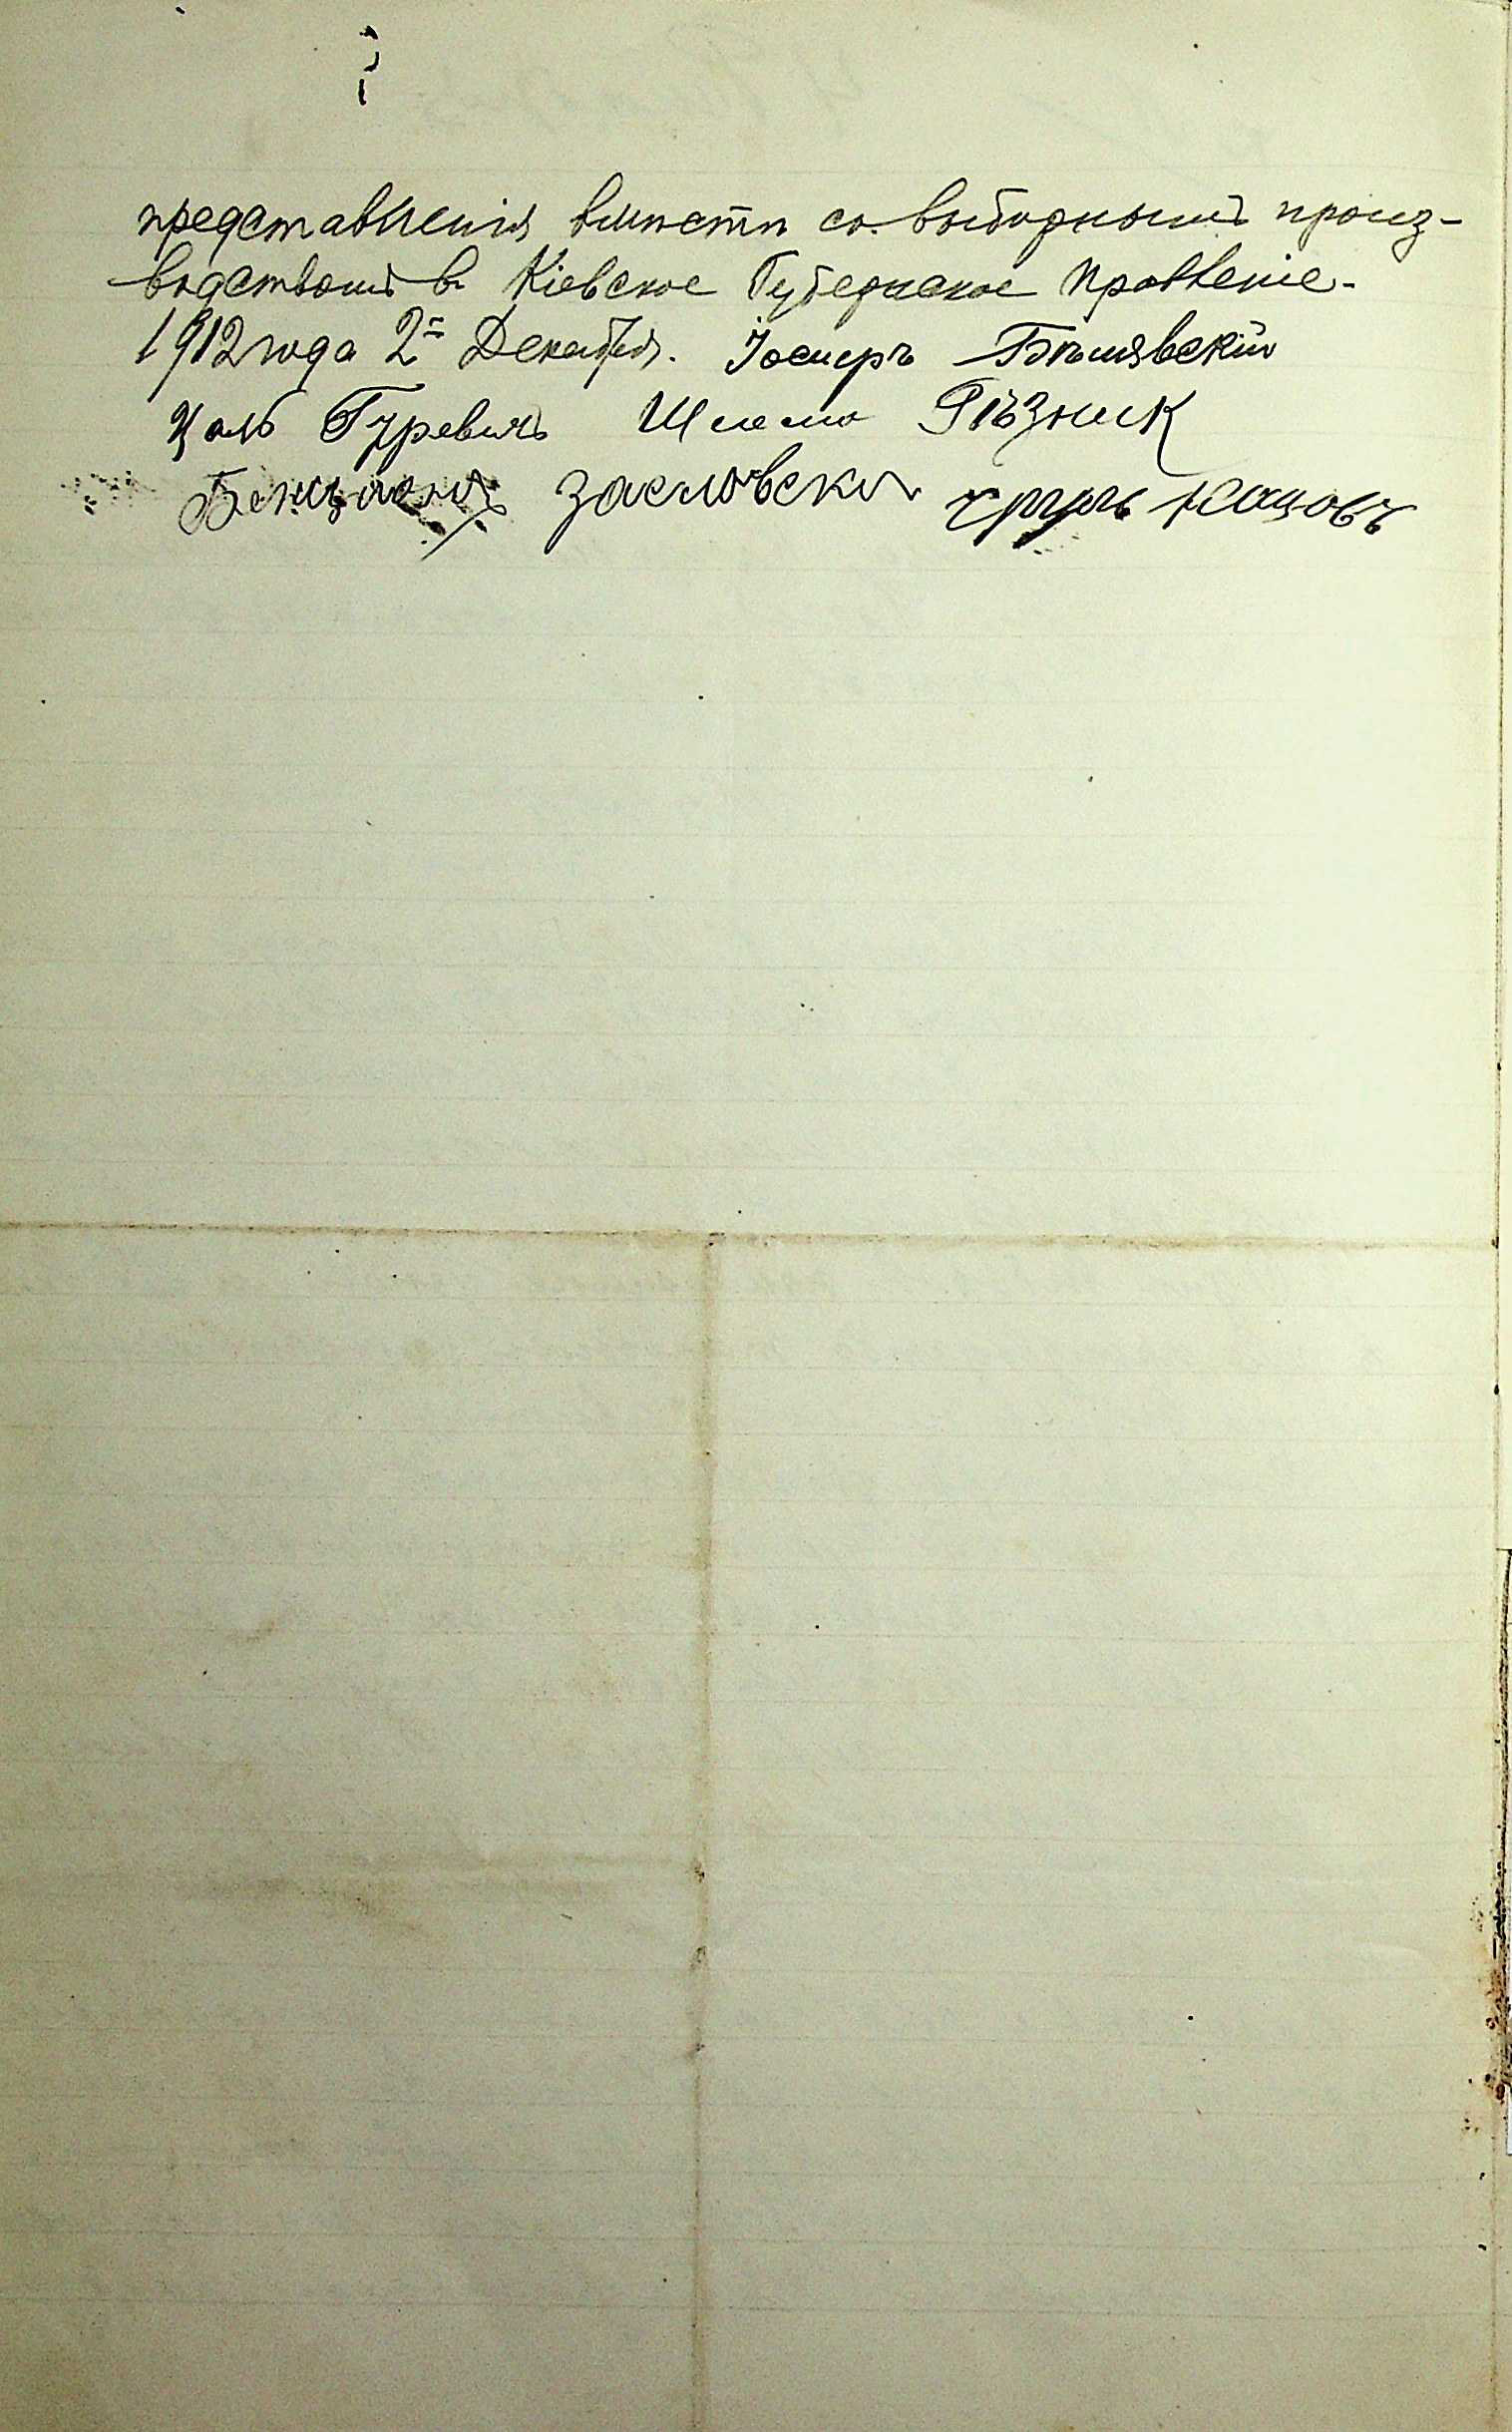 представленія вмѣстѣ съ выборнымъ произ-
водствомъ въ Кіевское Губернское Правленіе.
1912 года 2 Декабря. Іосифъ Бѣлявскій
Цаль Гуревичъ Шлема Рѣзник
Бенціонъ Засловски Кацовъ